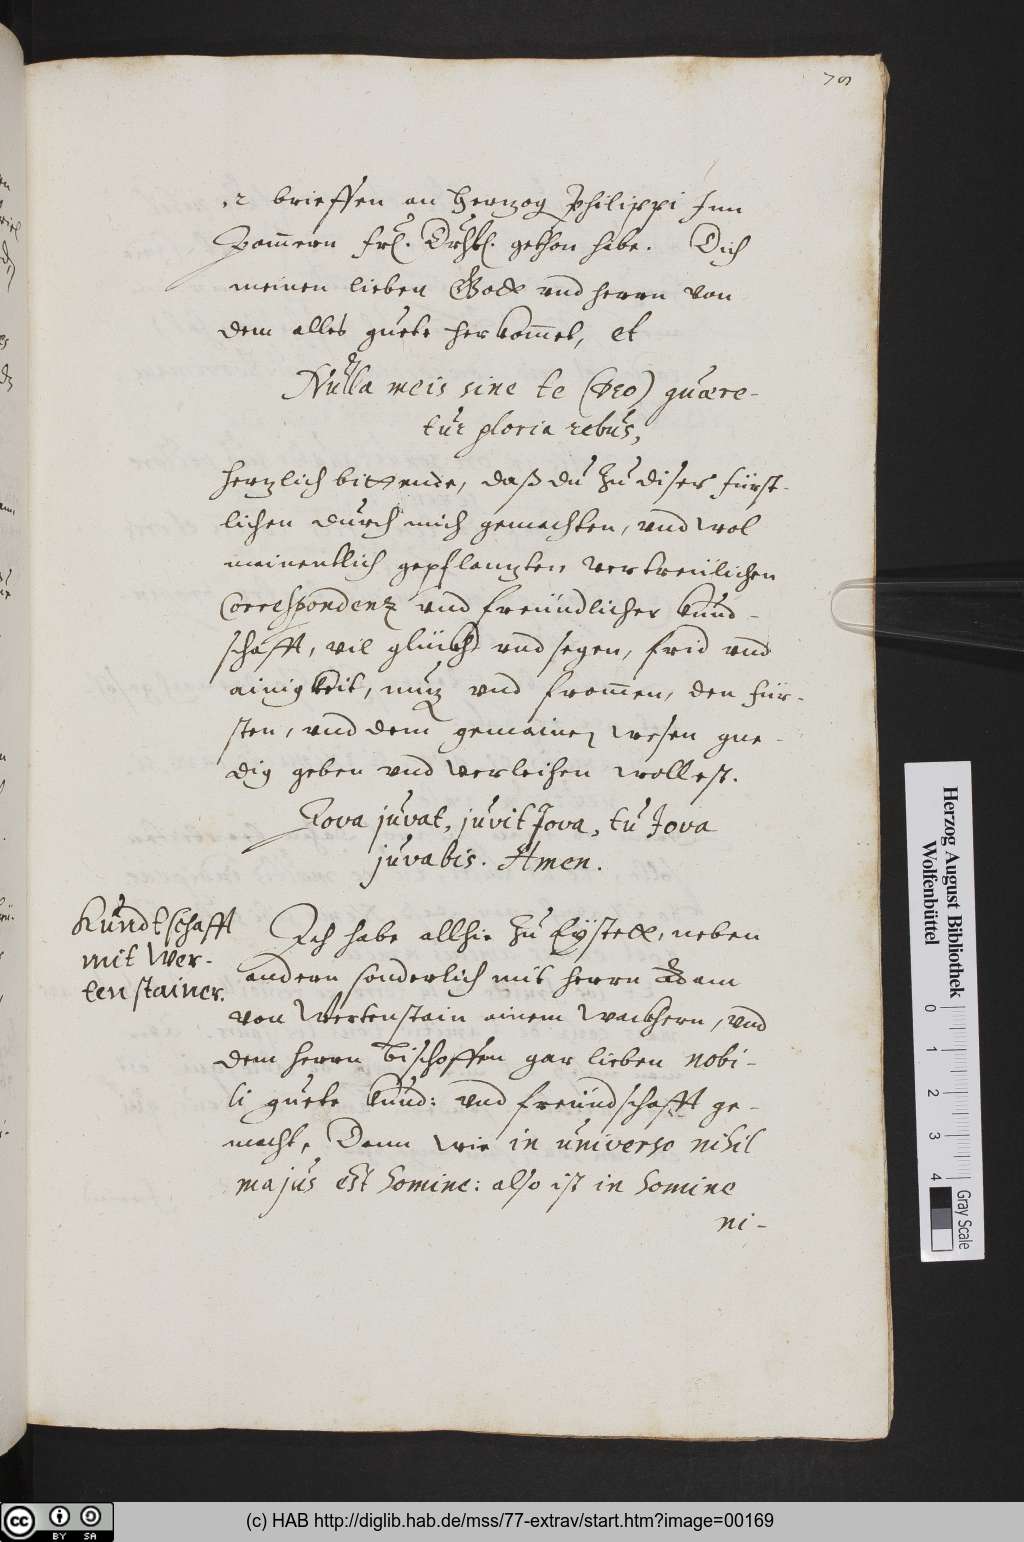 79
.2 brieffen an Herzog Philippi Inn
Pom̃ern frl. Drhtl. gethon habe. Dich
meinen lieben Gott vnd herrn von
dem alles guete herkom̃et, et
Nulla meis sine te (Deo) quære-
tur gloria rebus,
hertzlich bittende, daß du zu diser fürst-
lichen durch mich gemachten, vnd wol
mainentlich gepflantzten vertreulichen
Correspondentz vnd freündlicher kund-
schafft, vil glückh vnd segen, frid vnd
ainigkeit, nutz vnd from̃en, den für-
sten, vnd dem gemainen wesen gne-
dig geben vnd verleihen wollest.
Iova juvat, juvit Iova, tu Iova
juvabis. Amen.
Kundtschafft
mit Wer-
tenstainer.
Ich habe allhie zu Eystett, neben
andern sonderlich mit herrn Adam
von Wertenstain ainem wackhern, vnd
dem herrn Bischoffen gar lieben nobi-
li guete kund: vnd freündschafft ge-
macht, Dann wie in universo nihil
majus est homine: also ist in homine
ni-
Herzog August Bibliothek
Wolfenbüttel
0 1 2 3 4
Gray Scale
cc BY SA
(c) HAB http://diglib.hab.de/mss/77-extrav/start.htm?image=00169